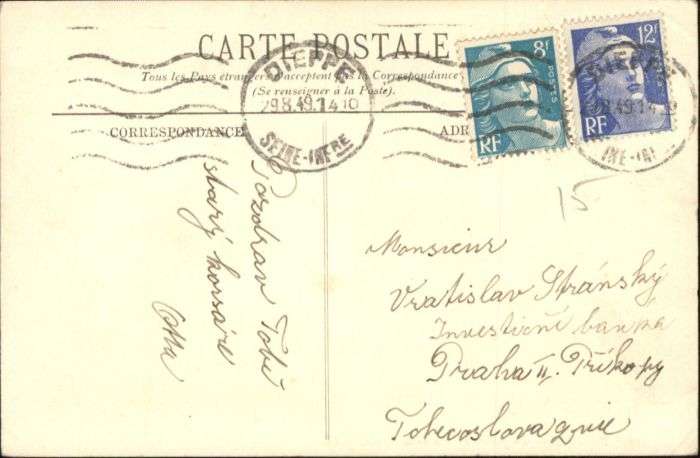 CARTE POSTALE
Tous les Pays étrangers n'acceptent pas la Correspondance
(Se renseigner à la Poste).
CORRESPONDANCE
ADR
DIEPPE
29.8.49.14 10
SEINE-INFRE
8F
POSTES
RF
12F
RF
DIEPPE
15
Pozdrav Tobě
starý korsáre
Otta
Monsieur
Vratislav Stránský
Investiční banka
Praha II, Příkopy
Tchecoslovaquie